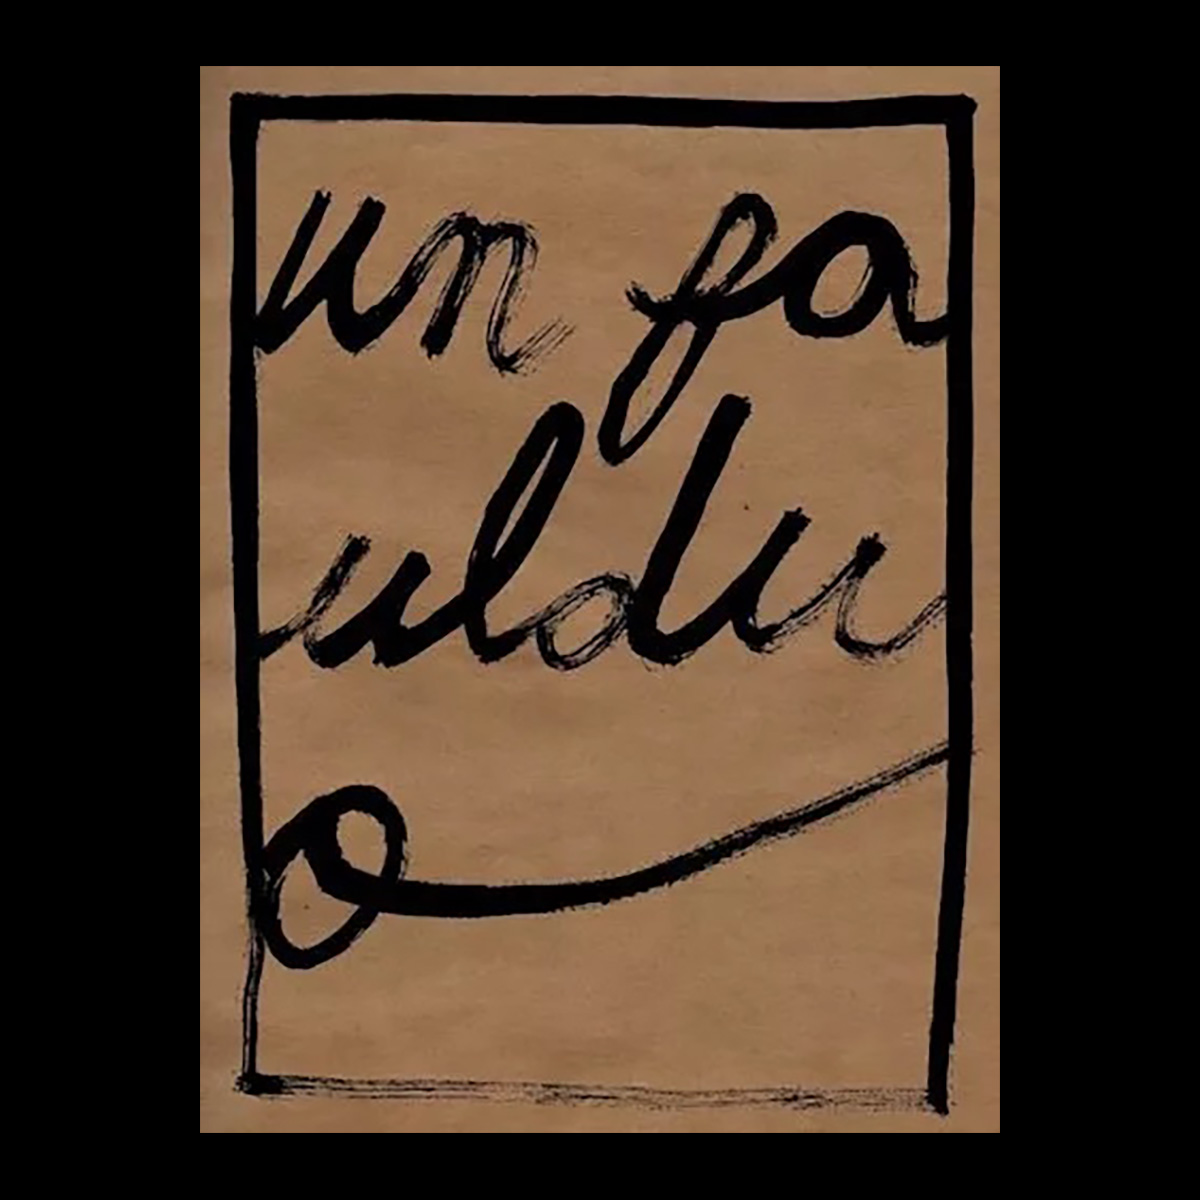 un fa
uldu
o